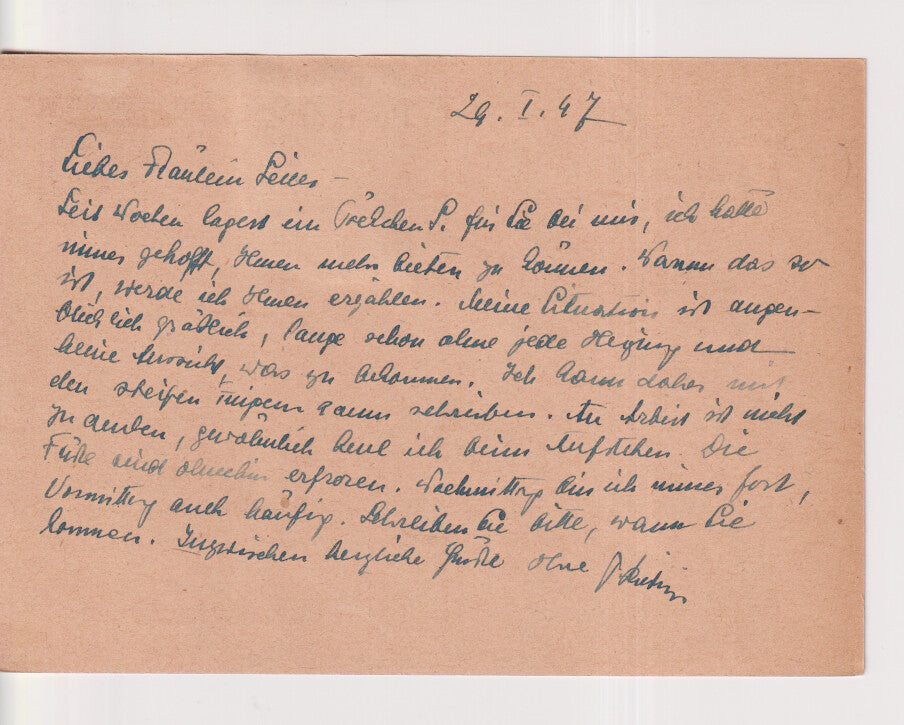 29. I. 47
Liebes Fräulein
Seit Wochen lagert ein für Sie bei mir, ich hatte
immer gehofft, Ihnen mehr bieten zu können. Warum das so
ist, werde ich Ihnen erzählen. Meine Situation ist augen-
blicklich gräßlich, lange schon ohne jede Heizung und
keine Aussicht, was zu bekommen. Ich kann daher mit
den steifen Fingern kaum schreiben. An Arbeit ist nicht
zu denken, gewöhnlich heul ich beim Aufstehen. Die
Füße sind ohnehin erfroren. Nachmittag bin ich immer fort,
Vormittag auch häufig. Schreiben Sie bitte, wann Sie
kommen. Inzwischen herzliche Grüße